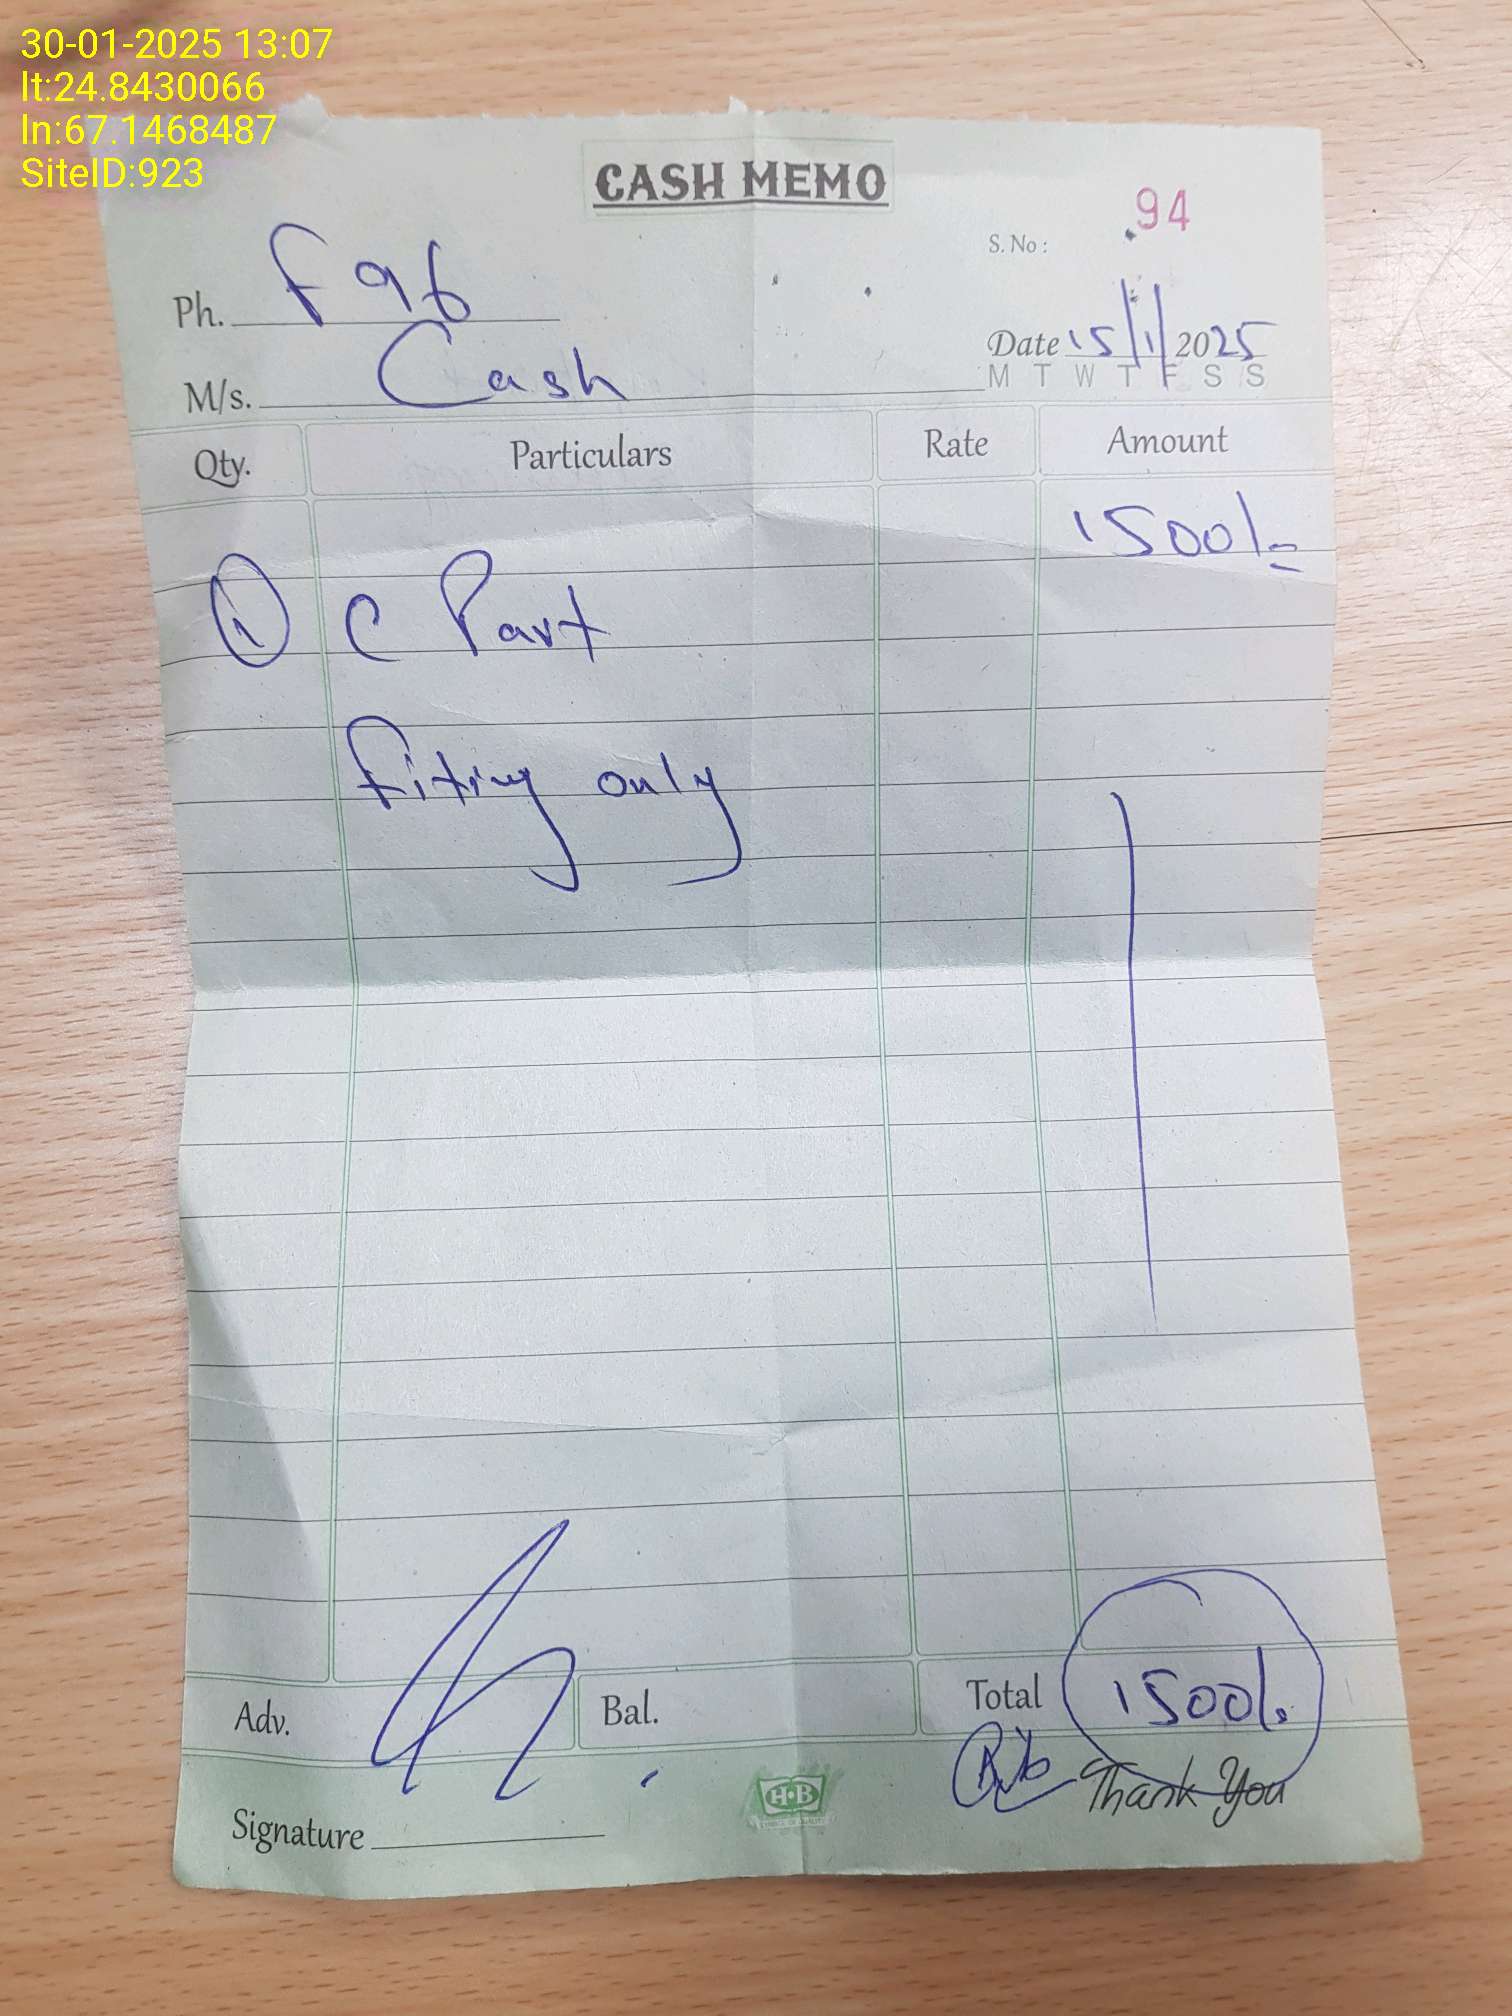 30-01-2025 13:07
lt:24.8430066
ln:67.1468487
SiteID:923
CASH MEMO
S. No : 94
Ph. F 96
Date 15/1/2025
M T W T F S S
M/s. Cash
Qty. Particulars Rate Amount
1500/=
1 C Part
Fiting only
Adv. Bal. Total 1500/.
Thank You
H·B
Signature